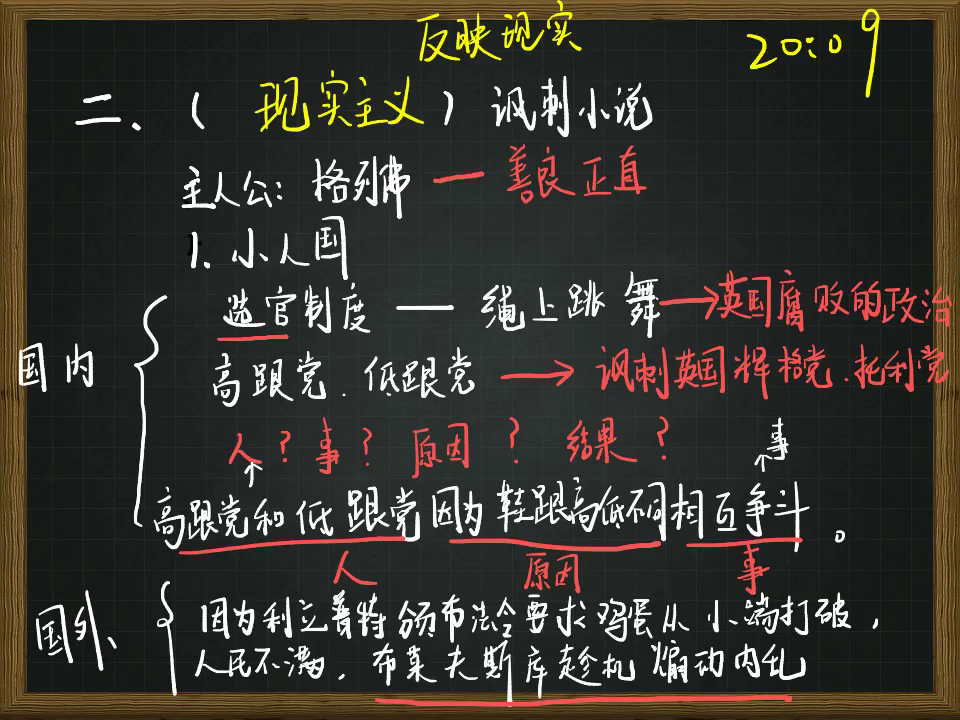 反映现实
20:09
二、（现实主义）讽刺小说
主人公：格列弗 — 善良正直
1、小人国
国内
选官制度 — 绳上跳舞 → 英国腐败的政治
高跟党、低跟党 → 讽刺英国辉格党、托利党
人？事？原因？结果？
↑ ↑事
高跟党和低跟党因为鞋跟高低不同相互争斗。
人 原因 事
国外、
因为利立普特颁布法令要求鸡蛋从小端打破，
人民不满，布莱夫斯库趁机煽动内乱